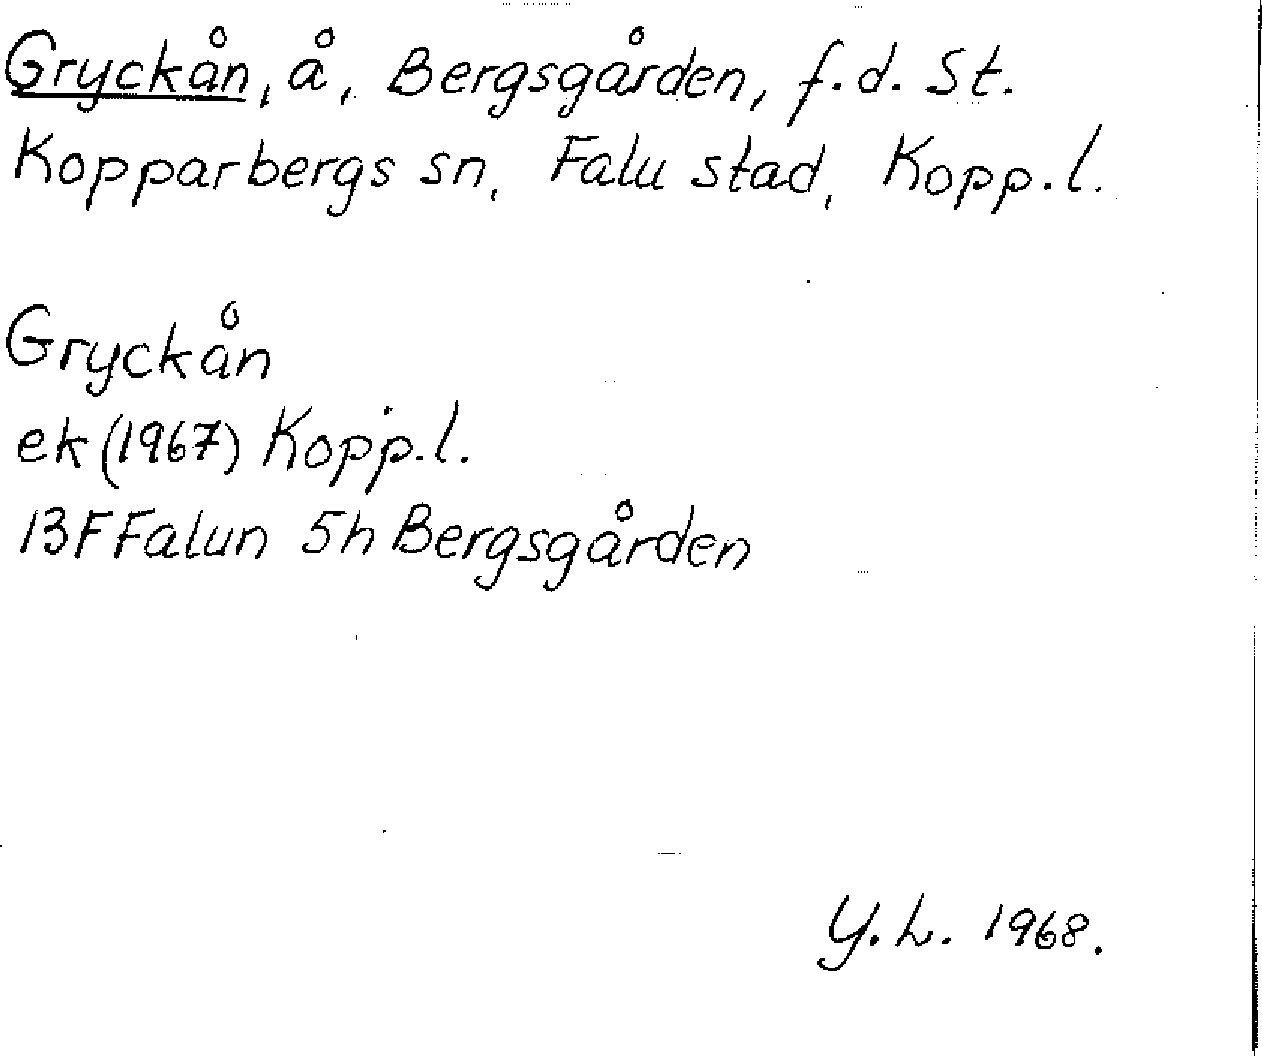 Gryckån, å, Bergsgården, f.d. St.
Kopparbergs sn, Falu stad, Kopp.l.
Gryckån
ek (1967) Kopp.l.
13F Falun 5h Bergsgården
Y.L. 1968.